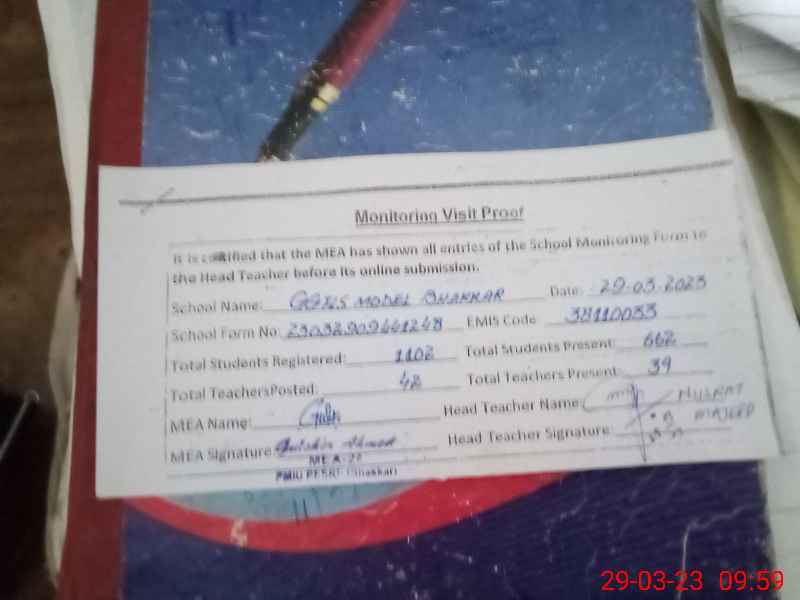 Monitoring Visit Proof
It is certified that the MEA has shown all entries of the School Monitoring Form to
the Head Teacher before its online submission.
School Name: GGHS MODEL BHAKKAR Date: 29-03-2023
School Form No: EMIS Code: 38110033
Total Students Registered: 1102 Total Students Present: 662
Total TeachersPosted: 42 Total Teachers Present: 39
MEA Name: Head Teacher Name: NUSRAT
MAJEED
MEA Signature: Head Teacher Signature:
MEA-22
PMIU PESRP (Bhakkar)
29-03-23 09:59